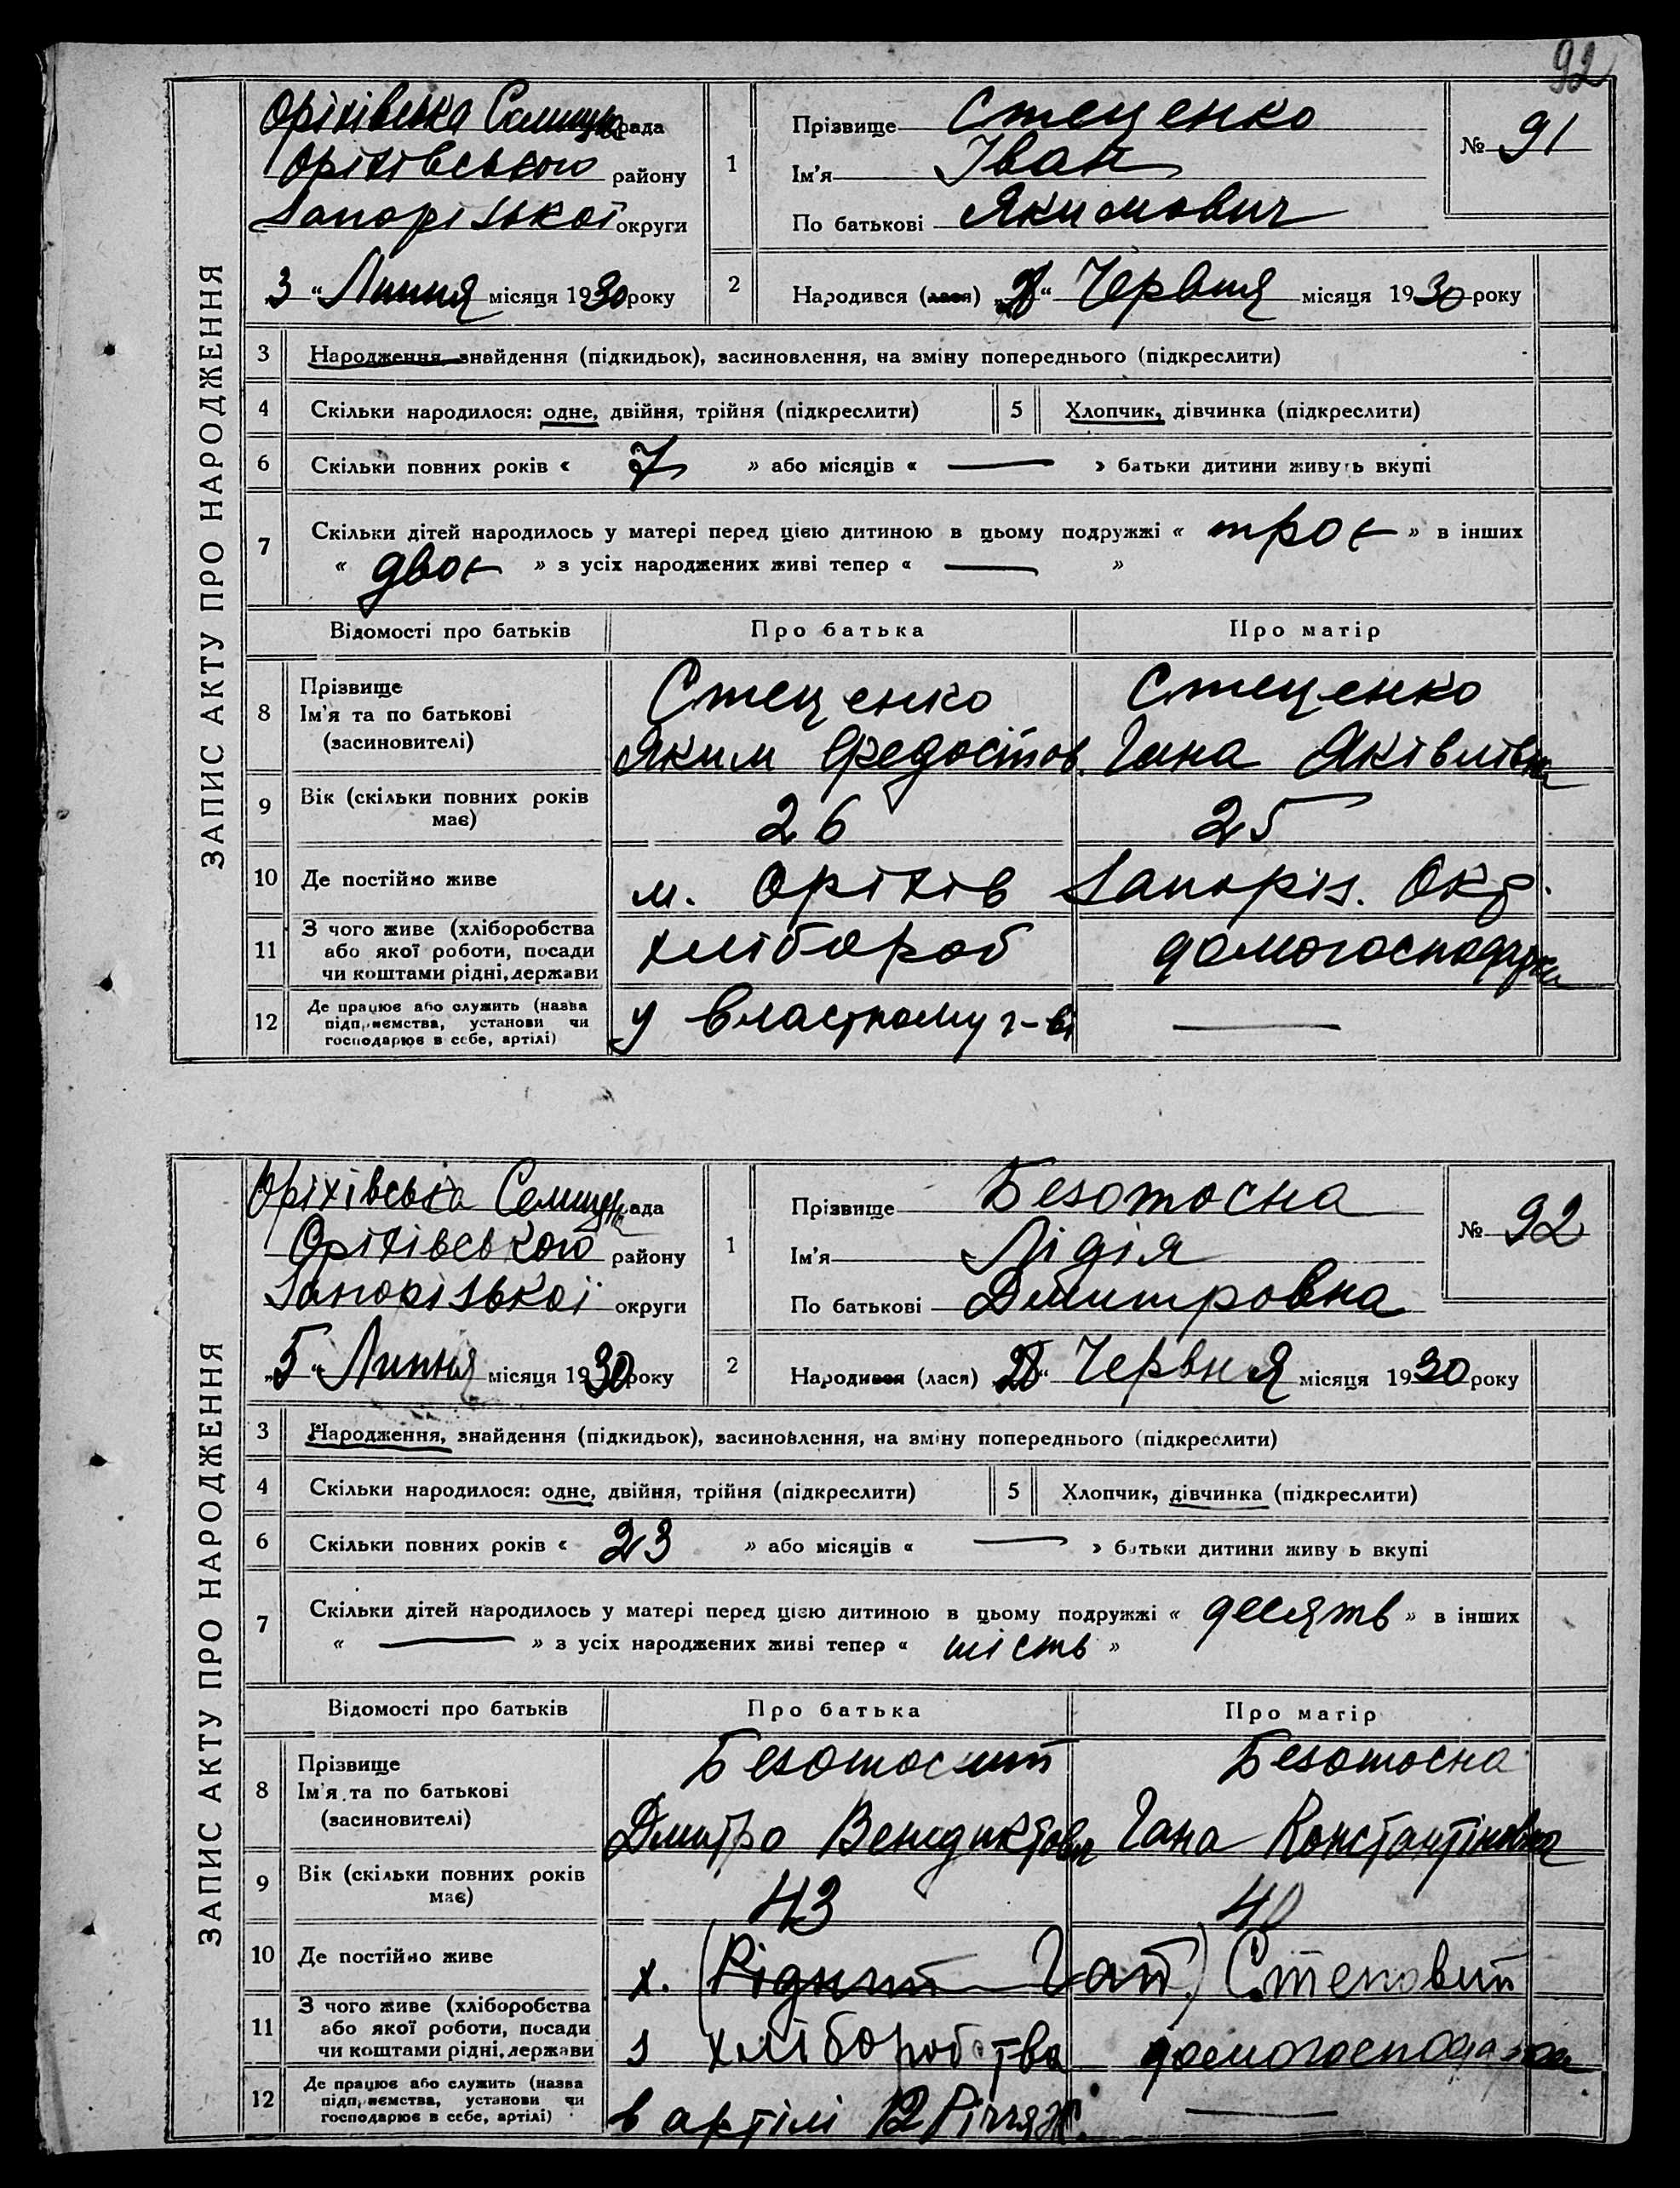 92
ЗАПИС АКТУ ПРО НАРОДЖЕННЯ
Оріхівська Селищна рада
Оріхівського району
Запорізької округи
„3 “ Липня місяця 1930 року
1
Прізвище Стеценко
Ім'я Іван
По батькові Якимович
№ 91
2
Народився (лася) „28“ Червня місяця 1930 року
3 Народження, знайдення (підкидьок), засиновлення, на зміну попереднього (підкреслити)
4 Скільки народилося: одне, двійня, трійня (підкреслити) 5 Хлопчик, дівчинка (підкреслити)
6 Скільки повних років « 7 » або місяців « — » батьки дитини живуть вкупі
7 Скільки дітей народилось у матері перед цією дитиною в цьому подружжі « троє » в інших
« двоє » з усіх народжених живі тепер « — »
Відомості про батьків Про батька Про матір
8 Прізвище
Ім'я та по батькові
(засиновителі)
Стеценко Стеценко
Яким Гана Яківлівна
9 Вік (скільки повних років
має)
26 25
10 Де постійно живе м. Оріхів Запоріз. Окр.
11 З чого живе (хліборобства
або якої роботи, посади
чи коштами рідні, держави
хлібороб домогосподарка
12 Де працює або служить (назва
підприємства, установи чи
господарює в себе, артілі)
у власному г-ві —
ЗАПИС АКТУ ПРО НАРОДЖЕННЯ
Оріхівська Селищна рада
Оріхівського району
Запорізької округи
„5“ Липня місяця 1930 року
1
Прізвище Безотосна
Ім'я Лідія
По батькові Дмитровна
№ 92
2
Народився (лася) „28“ Червня місяця 1930 року
3 Народження, знайдення (підкидьок), засиновлення, на зміну попереднього (підкреслити)
4 Скільки народилося: одне, двійня, трійня (підкреслити) 5 Хлопчик, дівчинка (підкреслити)
6 Скільки повних років « 23 » або місяців « — » батьки дитини живуть вкупі
7 Скільки дітей народилось у матері перед цією дитиною в цьому подружжі « десять » в інших
« — » з усіх народжених живі тепер « шість »
Відомості про батьків Про батька Про матір
8 Прізвище
Ім'я та по батькові
(засиновителі)
Безотосний Безотосна
Дмитро Венедиктович Гана Константіновна
9 Вік (скільки повних років
має)
43 40
10 Де постійно живе х. (Рідний Гай) Степовий
11 З чого живе (хліборобства
або якої роботи, посади
чи коштами рідні, держави
з хліборобства домогосподарка
12 Де працює або служить (назва
підприємства, установи чи
господарює в себе, артілі)
в артілі 12 Річчя Ж. —